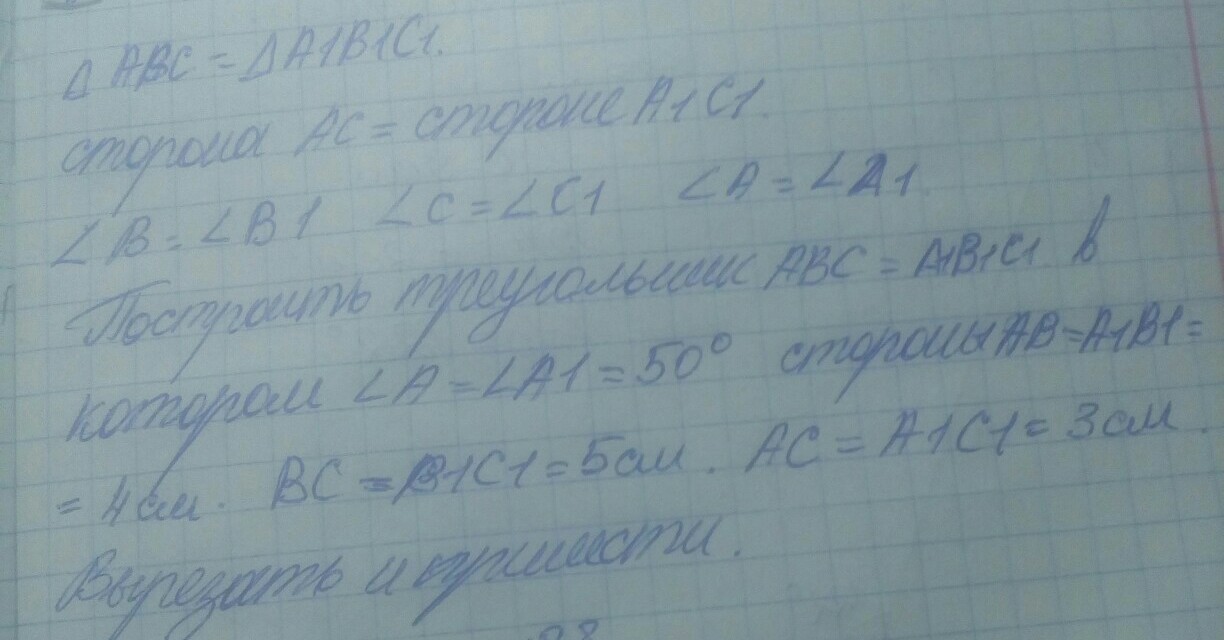 Δ ABC = Δ A1B1C1.
сторона AC = стороне A1C1.
∠B = ∠B1 ∠C = ∠C1 ∠A = ∠A1.
Построить треугольник ABC = A1B1C1 в
котором ∠A = ∠A1 = 50° стороны AB = A1B1 =
= 4 см. BC = B1C1 = 5 см. AC = A1C1 = 3 см.
Вырезать и принести.